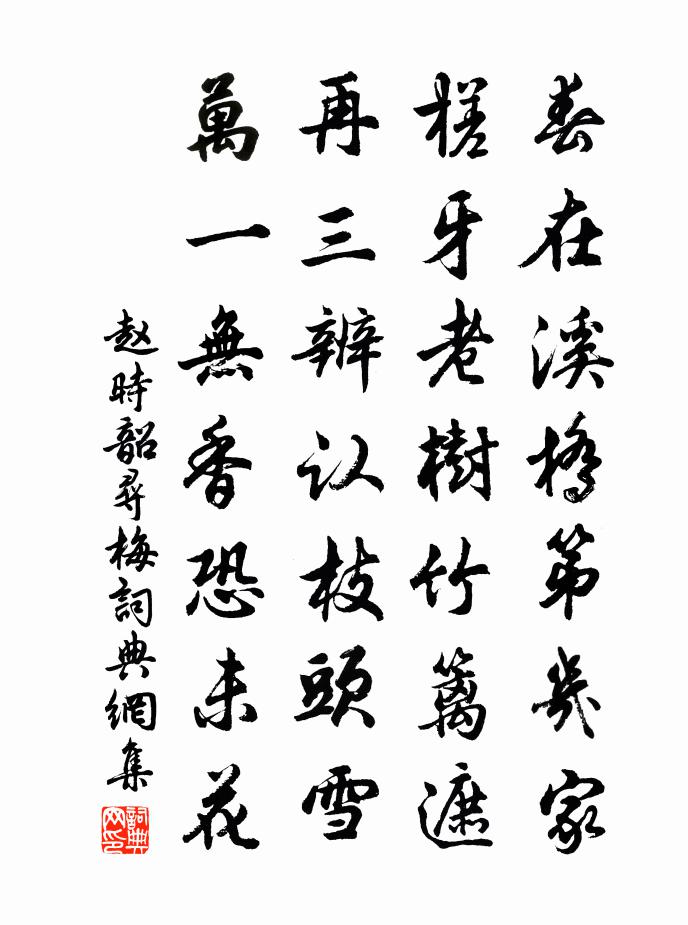 春在溪橋第幾家
槎牙老樹竹籬遮
再三辨认枝頭雪
萬一無香恐未花
赵時韶尋梅詞典網集
詞典网印